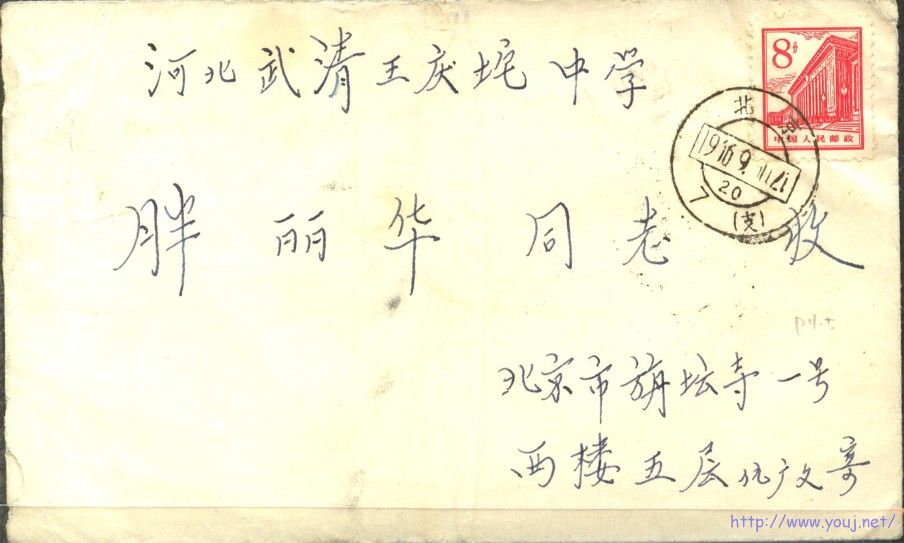 河北武清王庆坨中学
8分
中国人民邮政
北京
20
7
(支)
胖丽华同志收
北京市旃坛寺一号
西楼五层 广文寄
http://www.youj.net/